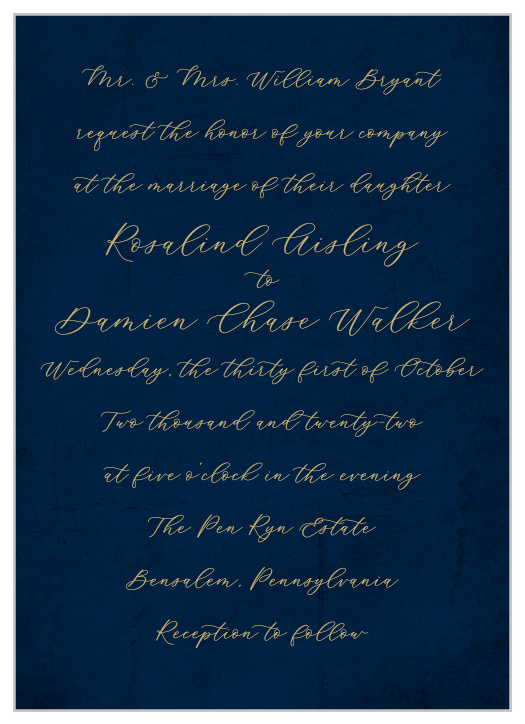 Mr. & Mrs. William Bryant
request the honor of your company
at the marriage of their daughter
Rosalind Aisling
to
Damien Chase Walker
Wednesday, the thirty first of October
Two thousand and twenty-two
at five o'clock in the evening
The Pen Ryn Estate
Bensalem, Pennsylvania
Reception to follow